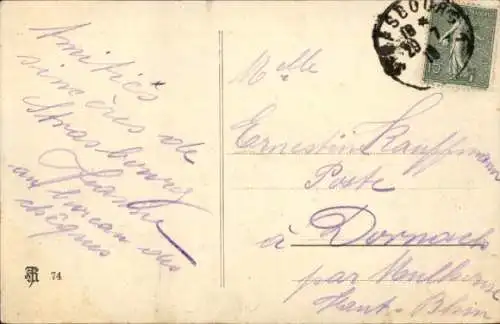 Amitiés
sincères de
Strasbourg
Jeanne
au bureau des
chèques
74
STRASBOURG
18 *
29 - 7
19
15
Mlle
Ernestin Kauffmann
Poste
à Dornach
par Mulhouse
Haut-Rhin